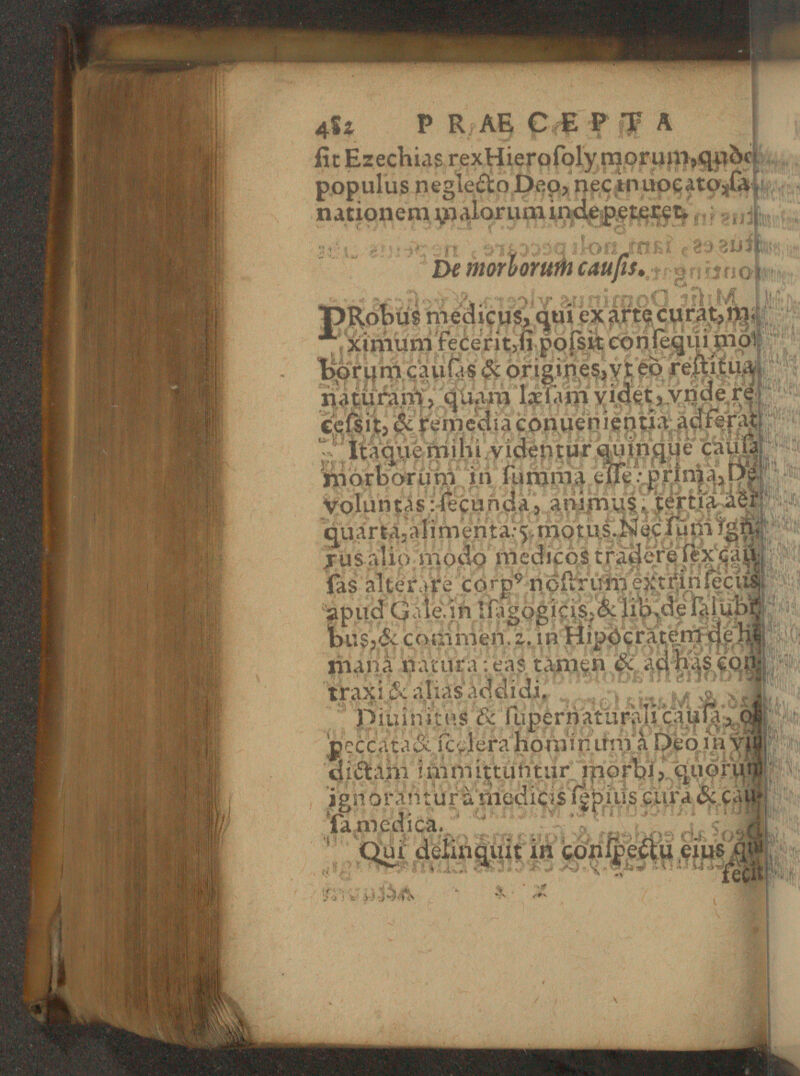 482 PRÆCÆPTA
fit Ezechias rex Hierosolymorum, quòd
populus neglecto Deo, nec inuocato, sa
nationem malorum inde peteret
De morborum causis.
PRobus medicus, qui ex arte curat, ma
ximum fecerit, si possit consequi mor
borum causas & origines, vt eò restituat
naturam, quam læsam videt, vnde re
cessit, & remedia conuenientia adferat
Itaque mihi videntur quinque causæ
morborum in summa esse: prima, Dei
voluntas: secunda, animus, tertia aër
quarta, alimenta: 5, motus. Nec sum igna
rus alio modo medicos tradere sex cau
sas alterare corp⁹ nostrum extrinsecus
apud Gale. in Isagogicis, & lib. de salubri
bus, & commen. 2. in Hipocratem de hu
mana natura: eas tamen & ad has con
traxi & alias addidi.
Diuinitus & supernaturali causa, ob
peccata & scelera hominum à Deo in vin
dictam immittuntur morbi, quorum
ignorantur à medicis sæpius cura & cau
sa medica.
Qui delinquit in conspectu eius qui
fecit